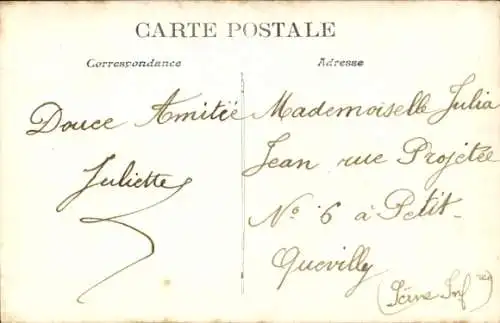 CARTE POSTALE
Correspondance
Adresse
Douce Amitié
Juliette
Mademoiselle Julia
Jean rue Projetée
No 6 à Petit-
Quevilly
(Seine Infre)